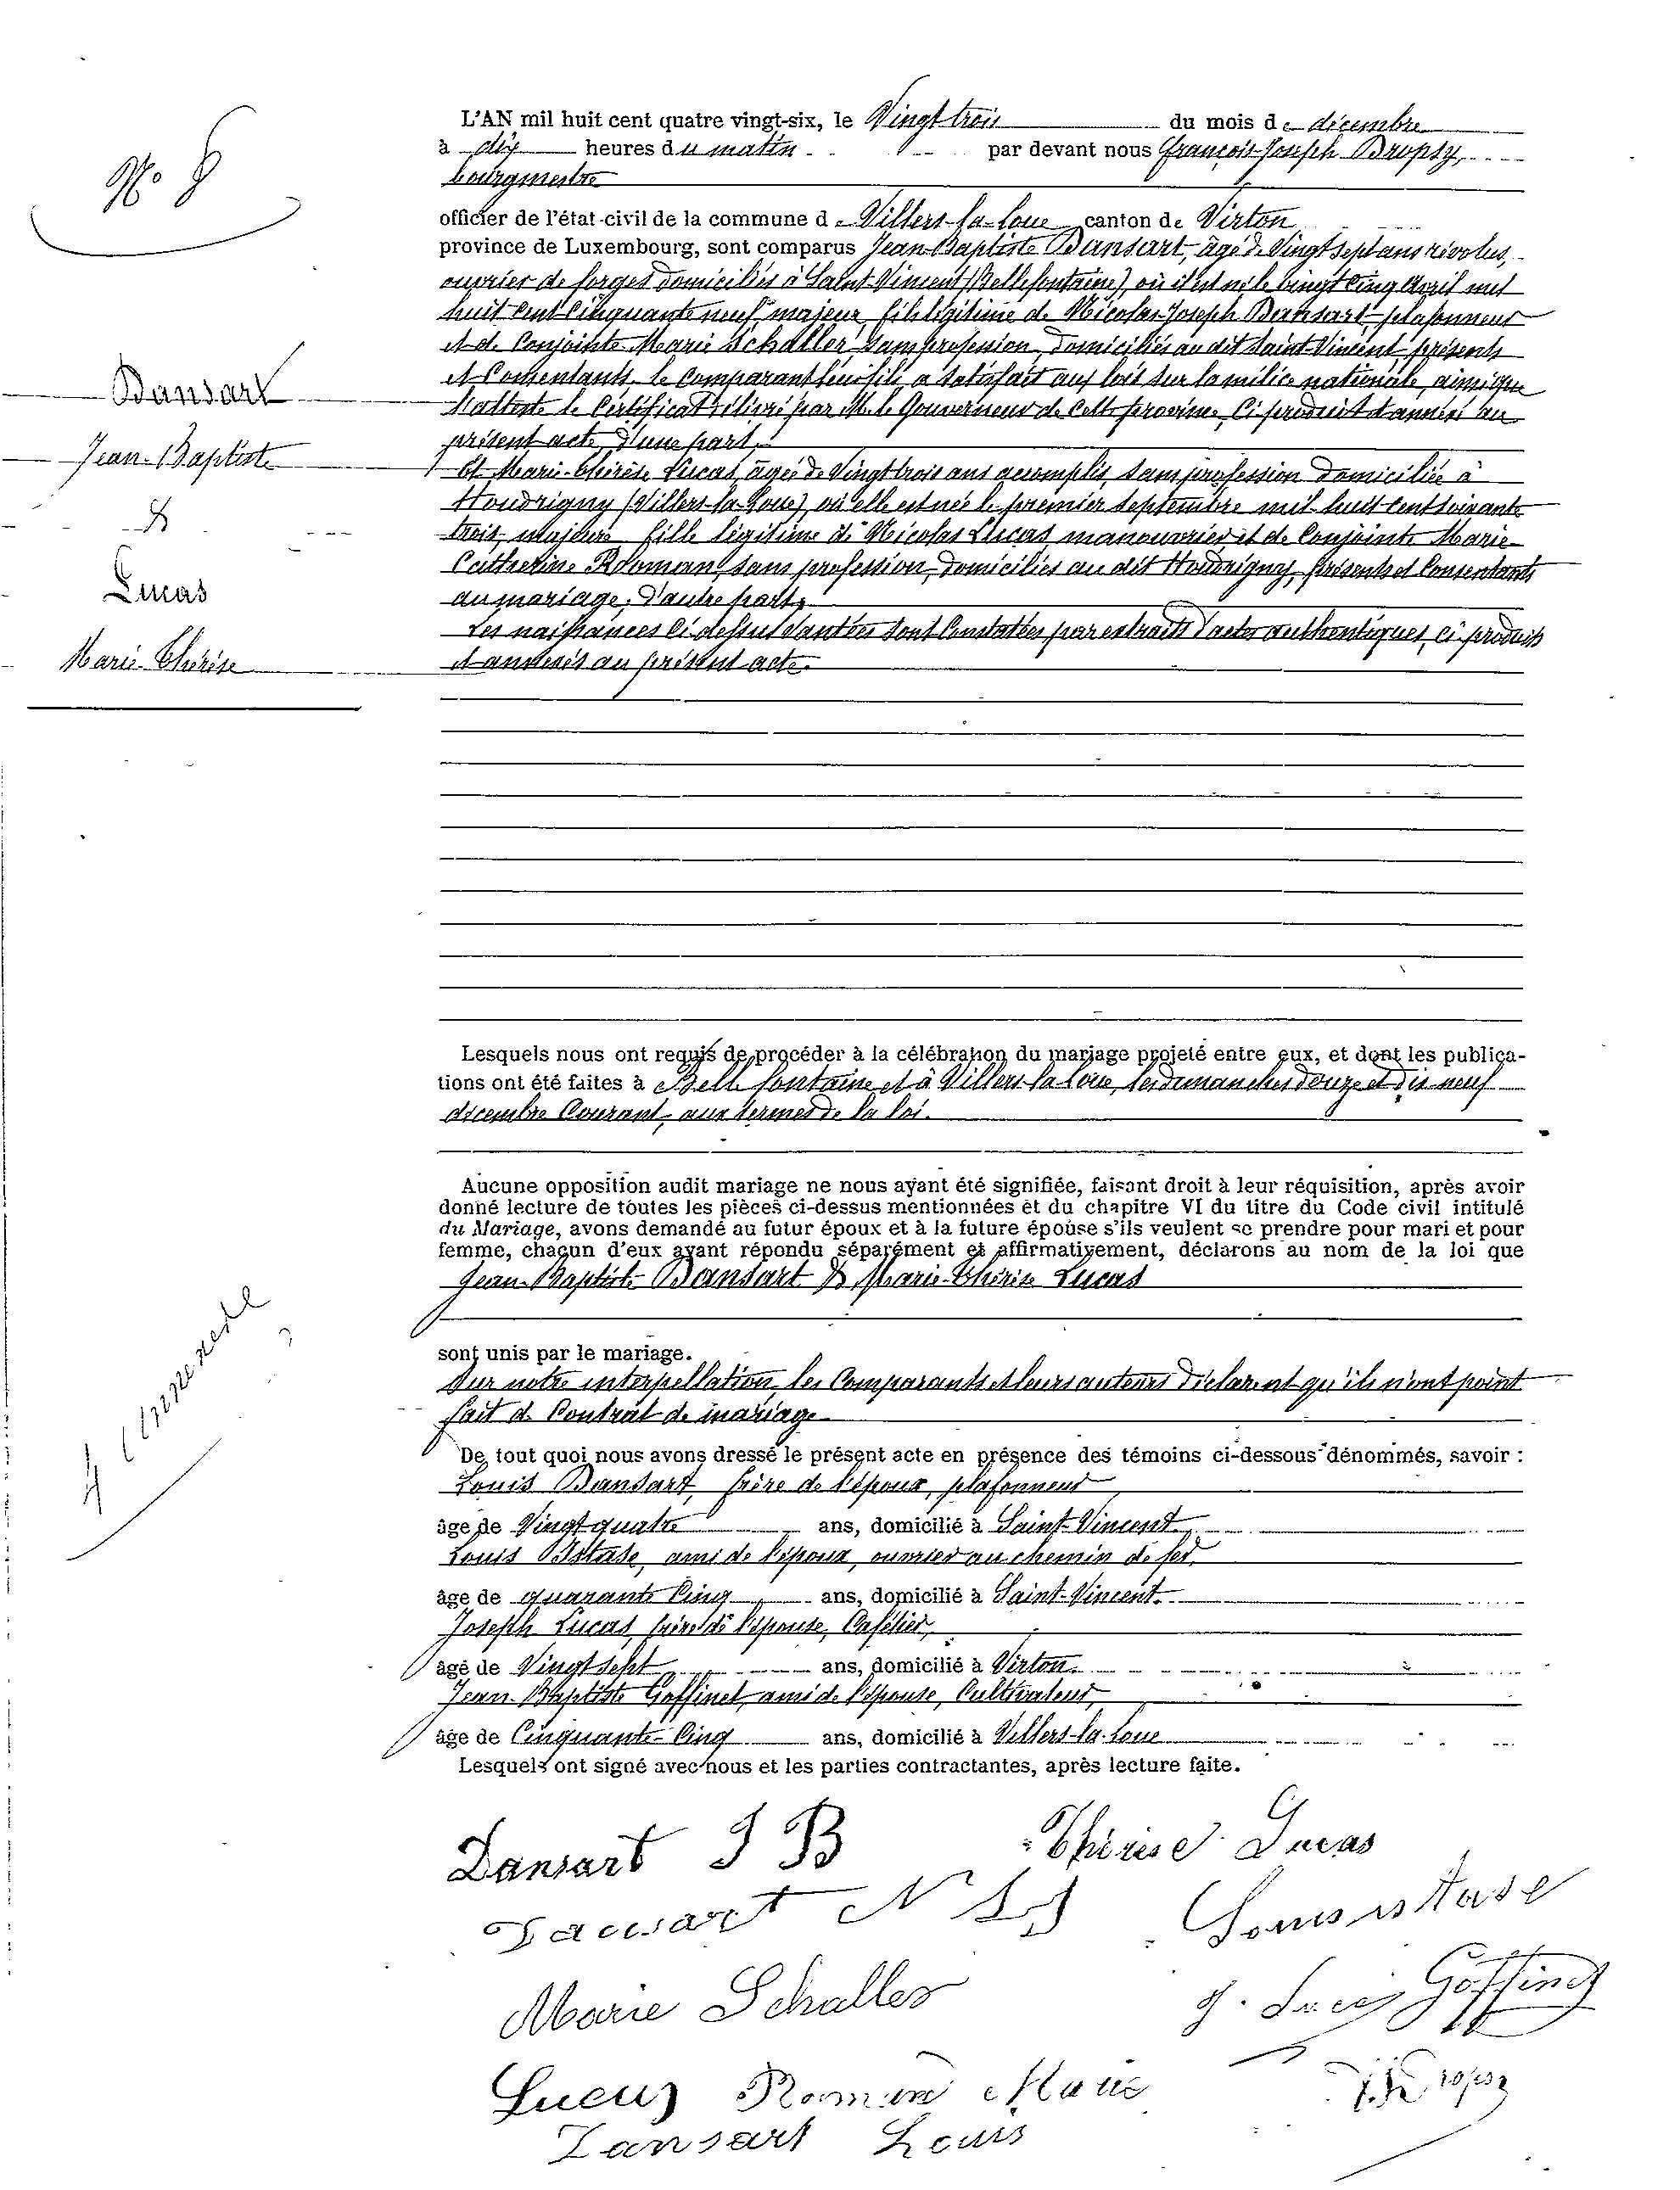 N° 8
L'AN mil huit cent quatre vingt-six, le Vingt trois du mois de décembre
à dix heures du matin par devant nous François-Joseph Bropsy,
bourgmestre
officier de l'état-civil de la commune de Villers-la-Loue canton de Virton
province de Luxembourg, sont comparus Jean-Baptiste Dansart, âgé de Vingt sept ans révolus,
ouvrier de forges domicilié à Saint-Vincent (Bellefontaine), où il est né le vingt cinq Avril mil
huit cent cinquante neuf, majeur, fils légitime de Nicolas Joseph Dansart plafonneur
et de conjointe Marie Schaller, sans profession, domiciliés au dit Saint-Vincent, présents
et consentants. le comparant leur fils a satisfait aux lois sur la milice nationale, ainsi que
l'atteste le certificat délivré par M. le Gouverneur de cette province, ci produit et annexé au
présent acte, d'une part,
Et Marie-Thérèse Lucas, âgée de Vingt trois ans accomplis, sans profession domiciliée à
Houdrigny (Villers-la-Loue), où elle est née le premier septembre mil-huit-cent soixante
trois, majeure fille légitime de Nicolas Lucas manouvrier et de conjointe Marie-
Catherine Roman, sans profession, domiciliés au dit Houdrigny, présents et consentants
au mariage, d'autre part,
Les naissances ci-dessus dantées sont constatées par extraits d'actes authentiques, ci-produits
et annexés au présent acte.
Dansart
Jean-Baptiste
&
Lucas
Marie-Thérèse
Lesquels nous ont requis de procéder à la célébration du mariage projeté entre eux, et dont les publica-
tions ont été faites à Bellefontaine et à Villers-la-Loue, les dimanches douze et dix-neuf
décembre courant, aux termes de la loi.
Aucune opposition audit mariage ne nous ayant été signifiée, faisant droit à leur réquisition, après avoir
donné lecture de toutes les pièces ci-dessus mentionnées et du chapitre VI du titre du Code civil intitulé
du Mariage, avons demandé au futur époux et à la future épouse s'ils veulent se prendre pour mari et pour
femme, chacun d'eux ayant répondu séparément et affirmativement, déclarons au nom de la loi que
Jean-Baptiste Dansart & Marie-Thérèse Lucas
sont unis par le mariage.
Sur notre interpellation, les comparants et leurs auteurs déclarent qu'ils n'ont point
fait de contrat de mariage
4 annexes
De tout quoi nous avons dressé le présent acte en présence des témoins ci-dessous dénommés, savoir :
Louis Dansart, frère de l'époux, plafonneur
âgé de Vingt-quatre ans, domicilié à Saint-Vincent
Louis Istase, ami de l'époux, ouvrier au chemin de fer,
âgé de quarante cinq ans, domicilié à Saint-Vincent
Joseph Lucas, frère de l'épouse, Cafetier,
âgé de Vingt sept ans, domicilié à Virton
Jean-Baptiste Goffinet, ami de l'épouse, Cultivateur,
âgé de Cinquante-Cinq ans, domicilié à Villers-la-Loue
Lesquels ont signé avec nous et les parties contractantes, après lecture faite.
Dansart J B Thérèse Lucas
Dansart N J Louis istase
Marie Schaller J. Lucas Goffinet
Lucas Roman Marie
Dansart Louis